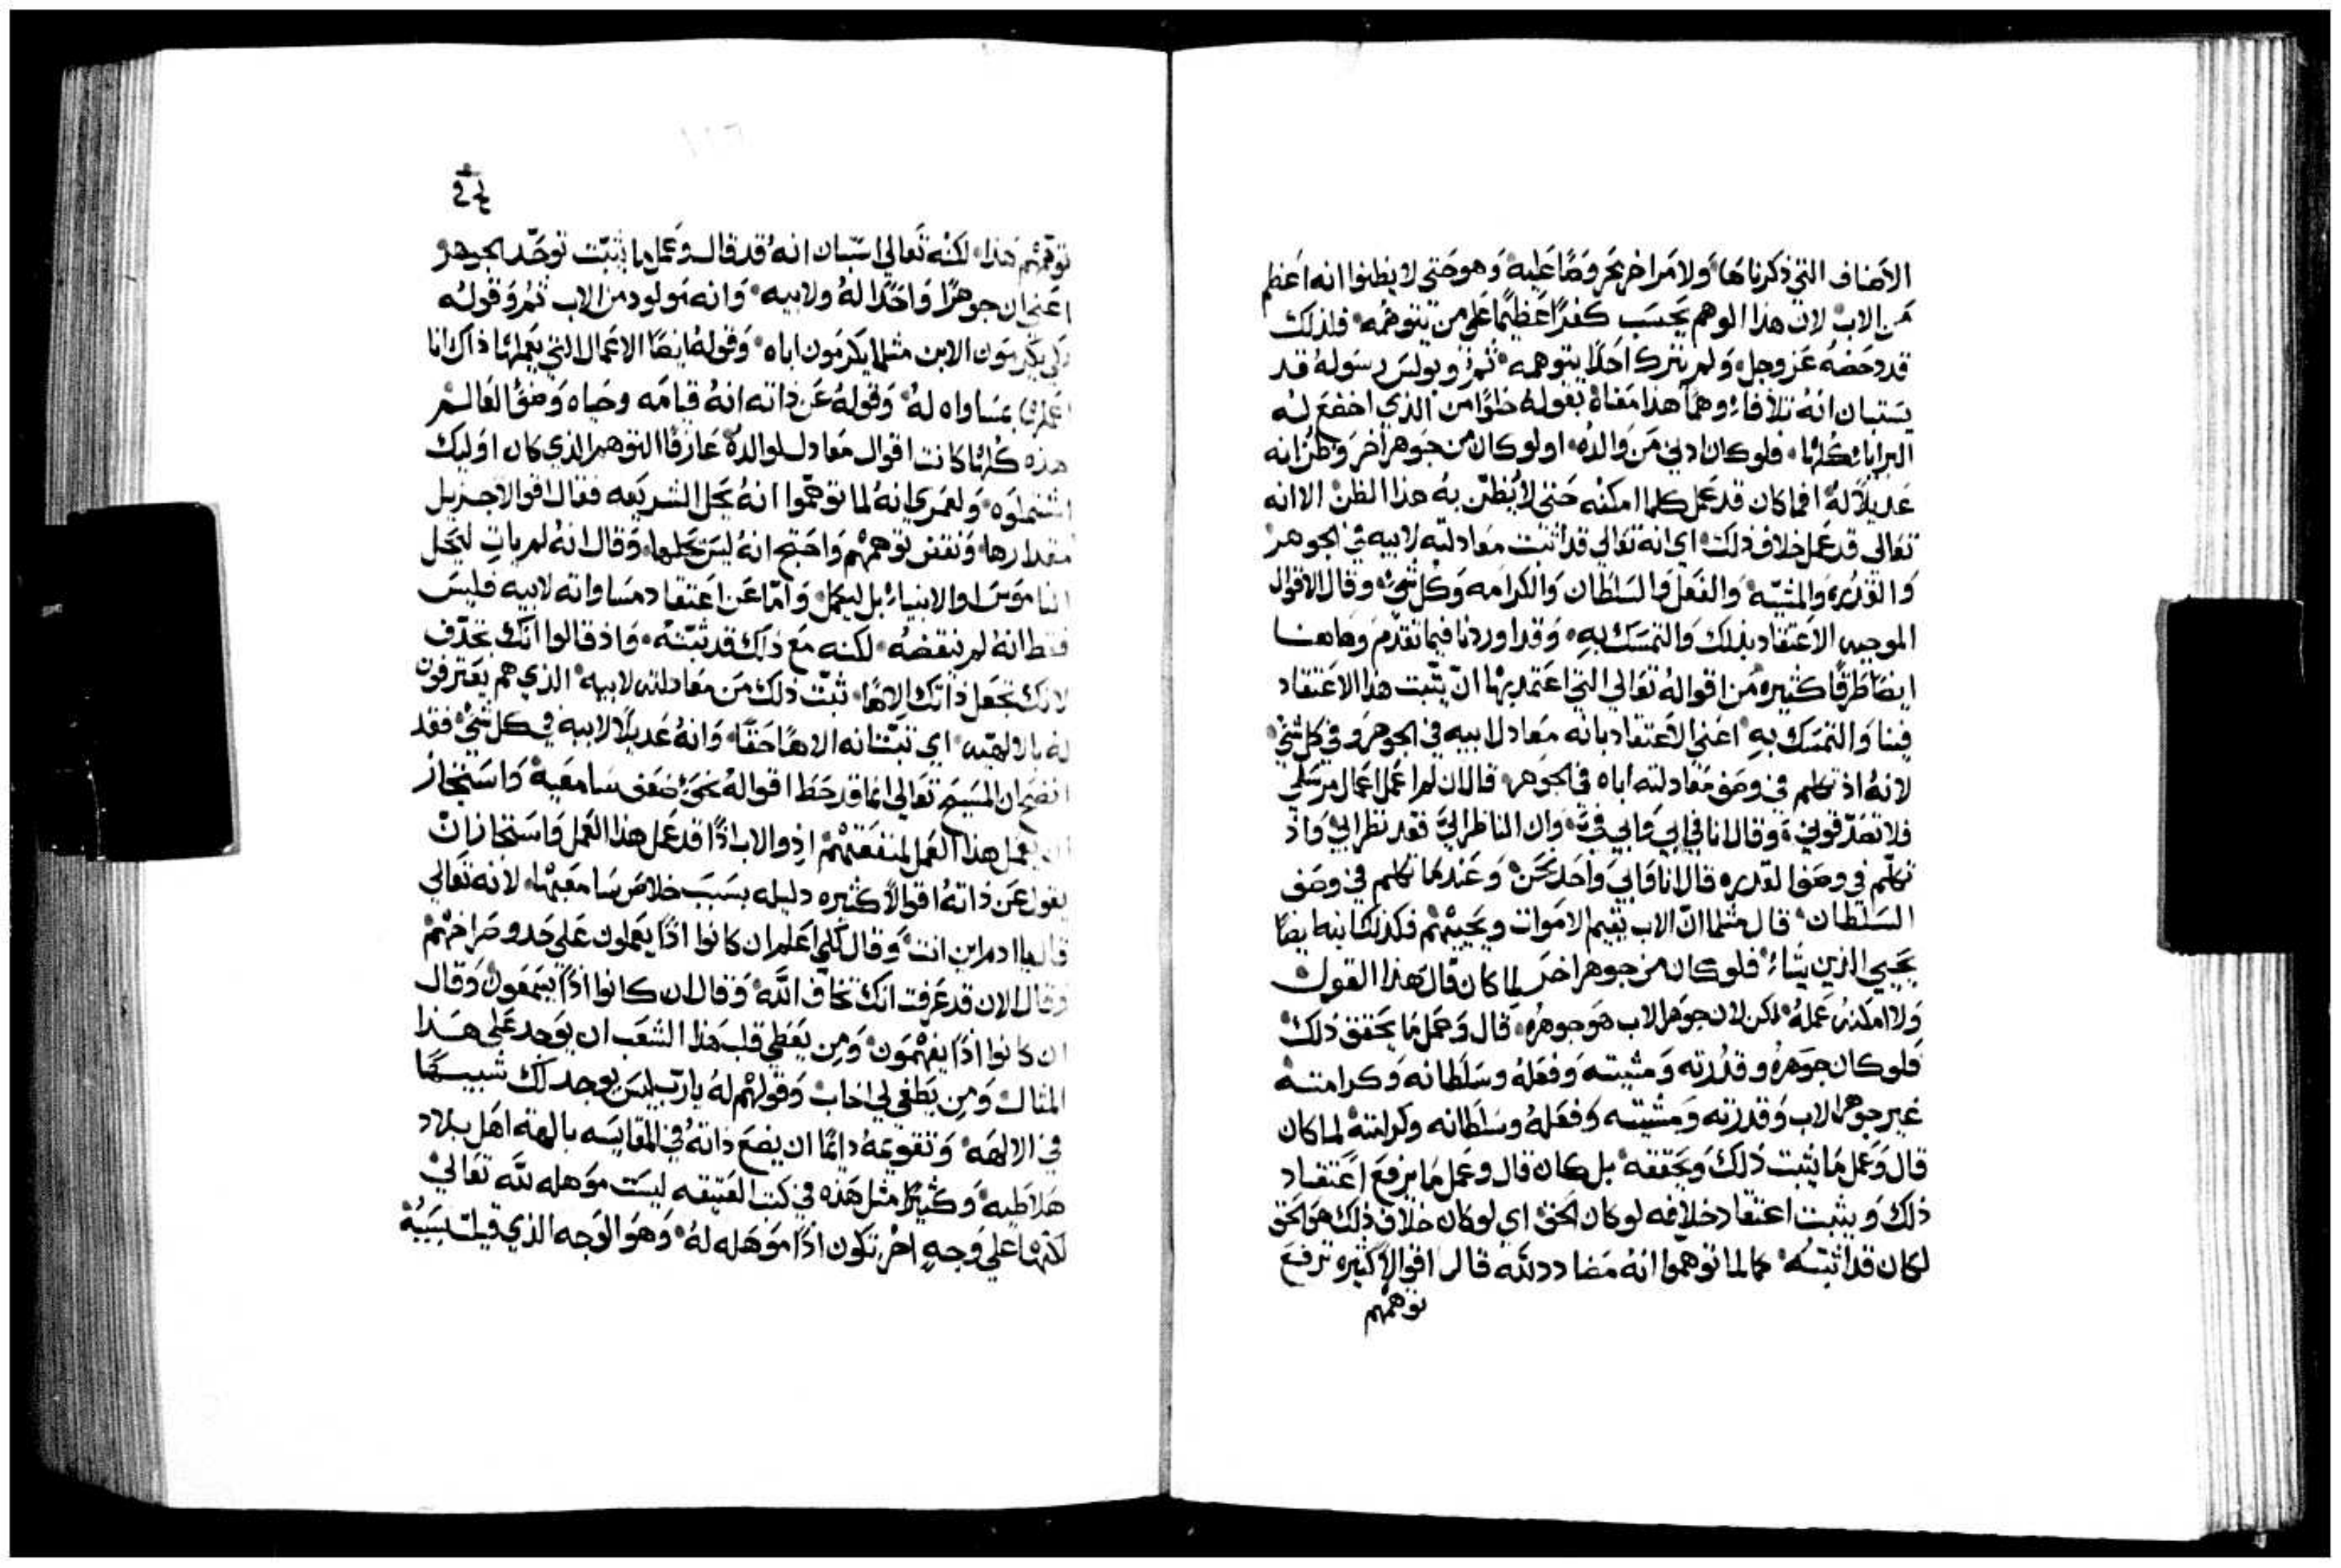 الاصناف التي ذكرناها ولا مرا خر بحر وصًا عليه وهو حتى لا يظنوا انه اعظم
من الاب لان هذا الوهم يحسب كفرًا عظيمًا علي من يتوهمه فلذلك
قد دحضه عز وجل ولم يترك احدًا يتوهمه ثم وبولس رسوله قد
يستبان انه تلافاء وهمًا هذا معناه بقوله خلوًا من الذي اخضع له
البرايا كلها فلو كان ادني من والده او لو كان من جوهر اخر وظن انه
عديلاً له افما كان قد عمل كلما امكنه حتى لا يُظن به هذا الظن الا انه
تعالى قد عمل خلاف ذلك اي انه تعالي قد اثبت معادلته لابيه في الجوهر
والقدره والمشيه والفعل والسلطان والكرامه وكل شيء وقال الاقوال
الموجبه الاعتقاد بذلك والتمسك به وقد اوردنا فيما تقدم وهاهنا
ايضا طرقًا كثيره من اقواله تعالي التي اعتمد بها ان يثبت هذا الاعتقاد
فينا والتمسك به اعني الاعتقاد بانه معادل لابيه في الجوهر وفي كل شي
لانه اذ تكلم في وصف معادلته اباه في الجوهر قال ان لم اعمل اعمال مرسلي
فلا تصدقوني وقال انا في ابي وابي فيّ وان الناظر اليّ فقد نظر ابي واذ
تكلم في وصف القدره قال انا وابي واحد نحن وعندما تكلم في وصف
السلطان قال مثلما ان الاب يقيم الاموات ويحييهم فكذلك ابنه ايضا
يحيي الذين يشاء فلو كان من جوهر اخر لما كان قال هذا القول
ولا امكنه عمله لكن لان جوهر الاب هو جوهره قال وعمل ما يحقق ذلك
فلو كان جوهره وقدرته ومشيته وفعله وسلطانه وكرامته
غير جوهر الاب وقدرته ومشيته وفعله وسلطانه وكرامته لما كان
قال وعمل ما يثبت ذلك ويحققه بل كان قال وعمل ما يرفع اعتقاد
ذلك ويثبت اعتقاد خلافه لو كان الحق اي لو كان خلاف ذلك هو الحق
لكان قد اثبته كما لما توهموا انه مضادد لله قال اقوالاً كثيره ترفع
توهمهم
توهمهم هذا لكنه تعالي استبان انه قد قال وعمل ما يثبت توحّد الجوهر
اعني ان جوهرًا واحدًا له ولابيه وانه مولود من الاب ثم وقوله
لكي يكرمون الابن مثلما يكرمون اباه وقوله ايضا الاعمال التي يعملها ذاك انا
اعملها بمساواه له وقوله عن ذاته انه قيامه وحياه وضوُ العالم
هذه كلها كانت اقوال معادل لوالده عارفًا التوهم الذي كان اوليك
اشتملوه ولعمري انه لما توهموا انه يحل الشريعه فقال اقوالاً جزيل
مقدارها ونقض توهمهم واحتج انه ليس يحلها وقال انه لم ياتِ ليحل
الناموس او الانبياء بل ليكمل وامّا عن اعتقاد مساواته لابيه فليس
فقط انه لم ينقضه لكنه مع ذلك قد ثبته واذ قالوا انك تجدّف
لانك تجعل ذاتك الاهًا ثبّت ذلك من معادلته لابيه الذي هم يعترفون
له بالالهيه اي ثبّت انه الاهًا حقًا وانه عديلاً لابيه في كل شي فقد
اتضح ان المسيح تعالي انما قد حط اقواله نحو ضعف سامعيه واستجاز
ان يعمل هذا العمل لمنفعتهم اذ والاب اذًا قد عمل هذا العمل واستجاز ان
يقول عن ذاته اقوالاً كثيره دليله بسبب خلاص سامعيها لانه تعالي
قال يا ادم اين انت وقال لكي اعلم ان كانوا اذًا يعملون علي حدو صراخهم
وقال الان قد عرفت انك تخاف الله وقال ان كانوا اذًا يسمعون وقال
ان كانوا اذًا يفهمون ومن يعطي قلب هذا الشعب ان يوجد علي هذا
المثال ومن يطغي لي اخاب وقولهم له يارب ليس يوجد لك شبيهًا
في الالهه وتقويمه دايمًا ان يضع ذاته في المقايسه بالهة اهل بلاد
هلاطيه وكثيرًا مثل هذه في كتب العتيقه ليست موهله لله تعالي
لكنها علي وجهٍ اخر تكون اذًا موهله له وهو الوجه الذي قيلت بسببه